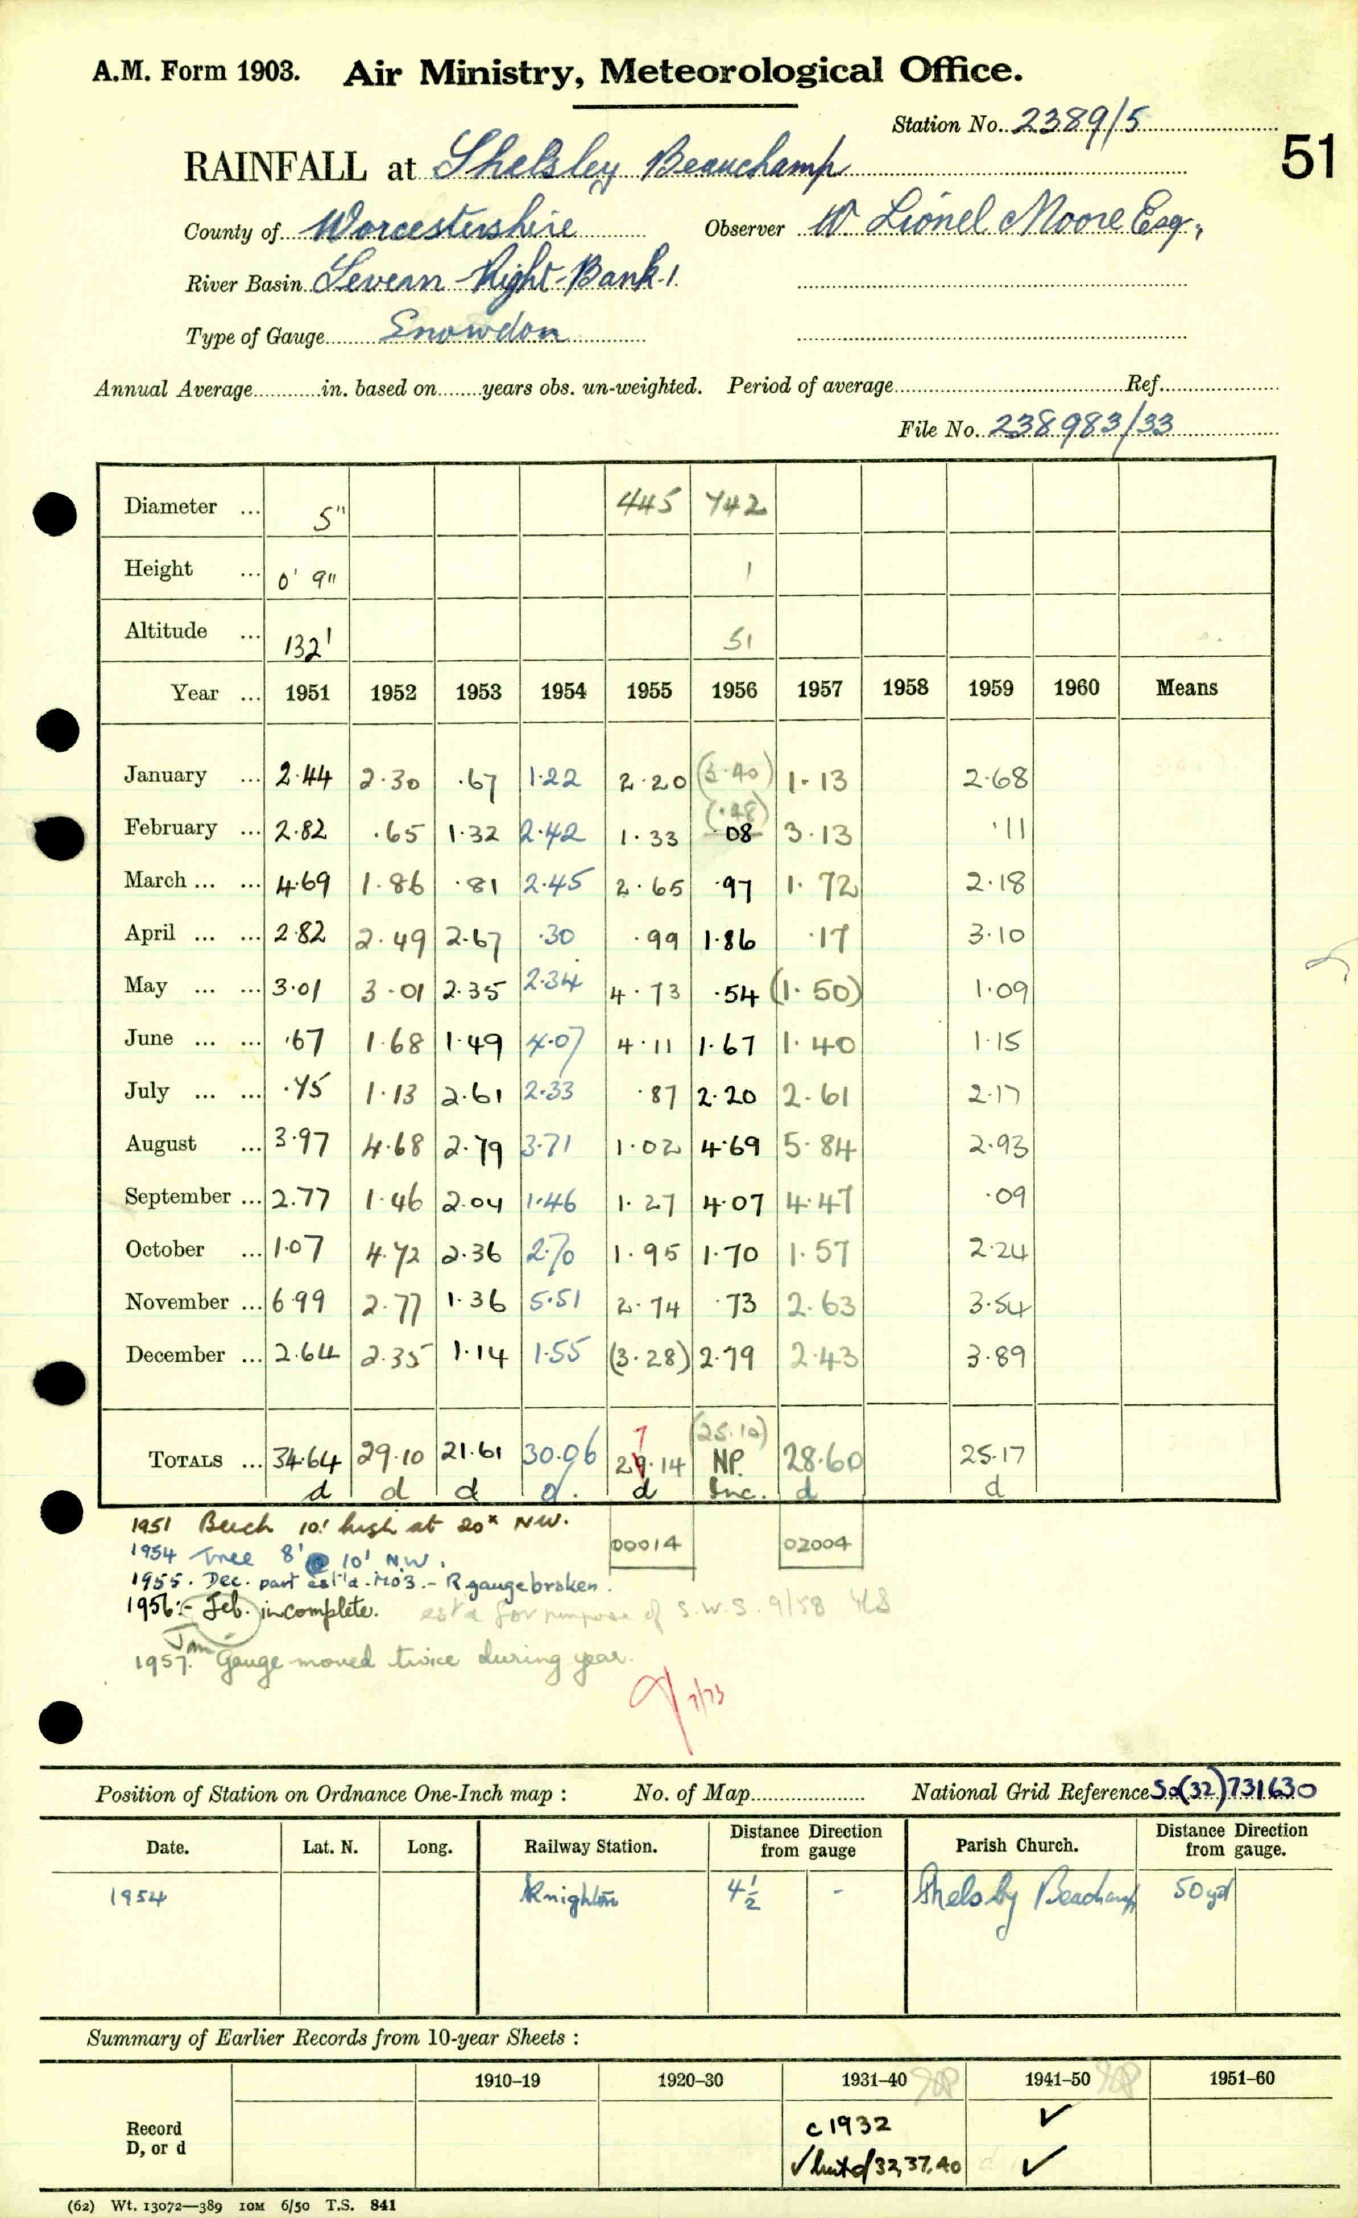 A.M. Form 1903. Air Ministry, Meteorological Office.
Station No. 2389/5
51
RAINFALL at Shelsley Beauchamp
County of Worcestershire Observer W Lionel Moore Esq,
River Basin Severn Right Bank 1
Type of Gauge Snowdon
Annual Average in. based on years obs. un-weighted. Period of average Ref.
File No. 238983/33
Diameter ... 5" 445 742
Height ... 0' 9" 1
Altitude ... 132' 51
Year ... 1951 1952 1953 1954 1955 1956 1957 1958 1959 1960 Means
January ... 2.44 2.30 .67 1.22 2.20 (3.40) 1.13 2.68
(.48)
February ... 2.82 .65 1.32 2.42 1.33 .08 3.13 .11
March ... ... 4.69 1.86 .81 2.45 2.65 .97 1.72 2.18
April ... ... 2.82 2.49 2.67 .30 .99 1.86 .17 3.10
May ... ... 3.01 3.01 2.35 2.34 4.73 .54 (1.50) 1.09
June ... ... .67 1.68 1.49 4.07 4.11 1.67 1.40 1.15
July ... ... .75 1.13 2.61 2.33 .87 2.20 2.61 2.17
August ... 3.97 4.68 2.79 3.71 1.02 4.69 5.84 2.93
September ... 2.77 1.46 2.04 1.46 1.27 4.07 4.47 .09
October ... 1.07 4.72 2.36 2.70 1.95 1.70 1.57 2.24
November ... 6.99 2.77 1.36 5.51 2.74 .73 2.63 3.54
December ... 2.64 2.35 1.14 1.55 (3.28) 2.79 2.43 3.89
7 (25.10)
TOTALS ... 34.64 29.10 21.61 30.06 29.14 NP. 28.60 25.17
d d d d. d Inc. d d
1951 Beech 10' high at 20x NW. 00014 02004
1954 Tree 8' @ 10' N.W.
1955. Dec. part est'd. MO3. - R gauge broken.
1956:- Feb. incomplete. est'd for purpose of S.W.S. 9/58
Jan
1957. Gauge moved twice during year.
7/73
Position of Station on Ordnance One-Inch map : No. of Map National Grid Reference SO(32)731630
Date. Lat. N. Long. Railway Station. Distance from Direction gauge Parish Church. Distance from Direction gauge.
1954 Knighton 4½ - Shelsley Beachamp 50 yd
Summary of Earlier Records from 10-year Sheets :
1910–19 1920–30 1931–40 1941–50 1951–60
Record c 1932 ✓
D, or d ✓ but d 32, 37, 40 ✓
(62) Wt. 13072—389 10M 6/50 T.S. 841